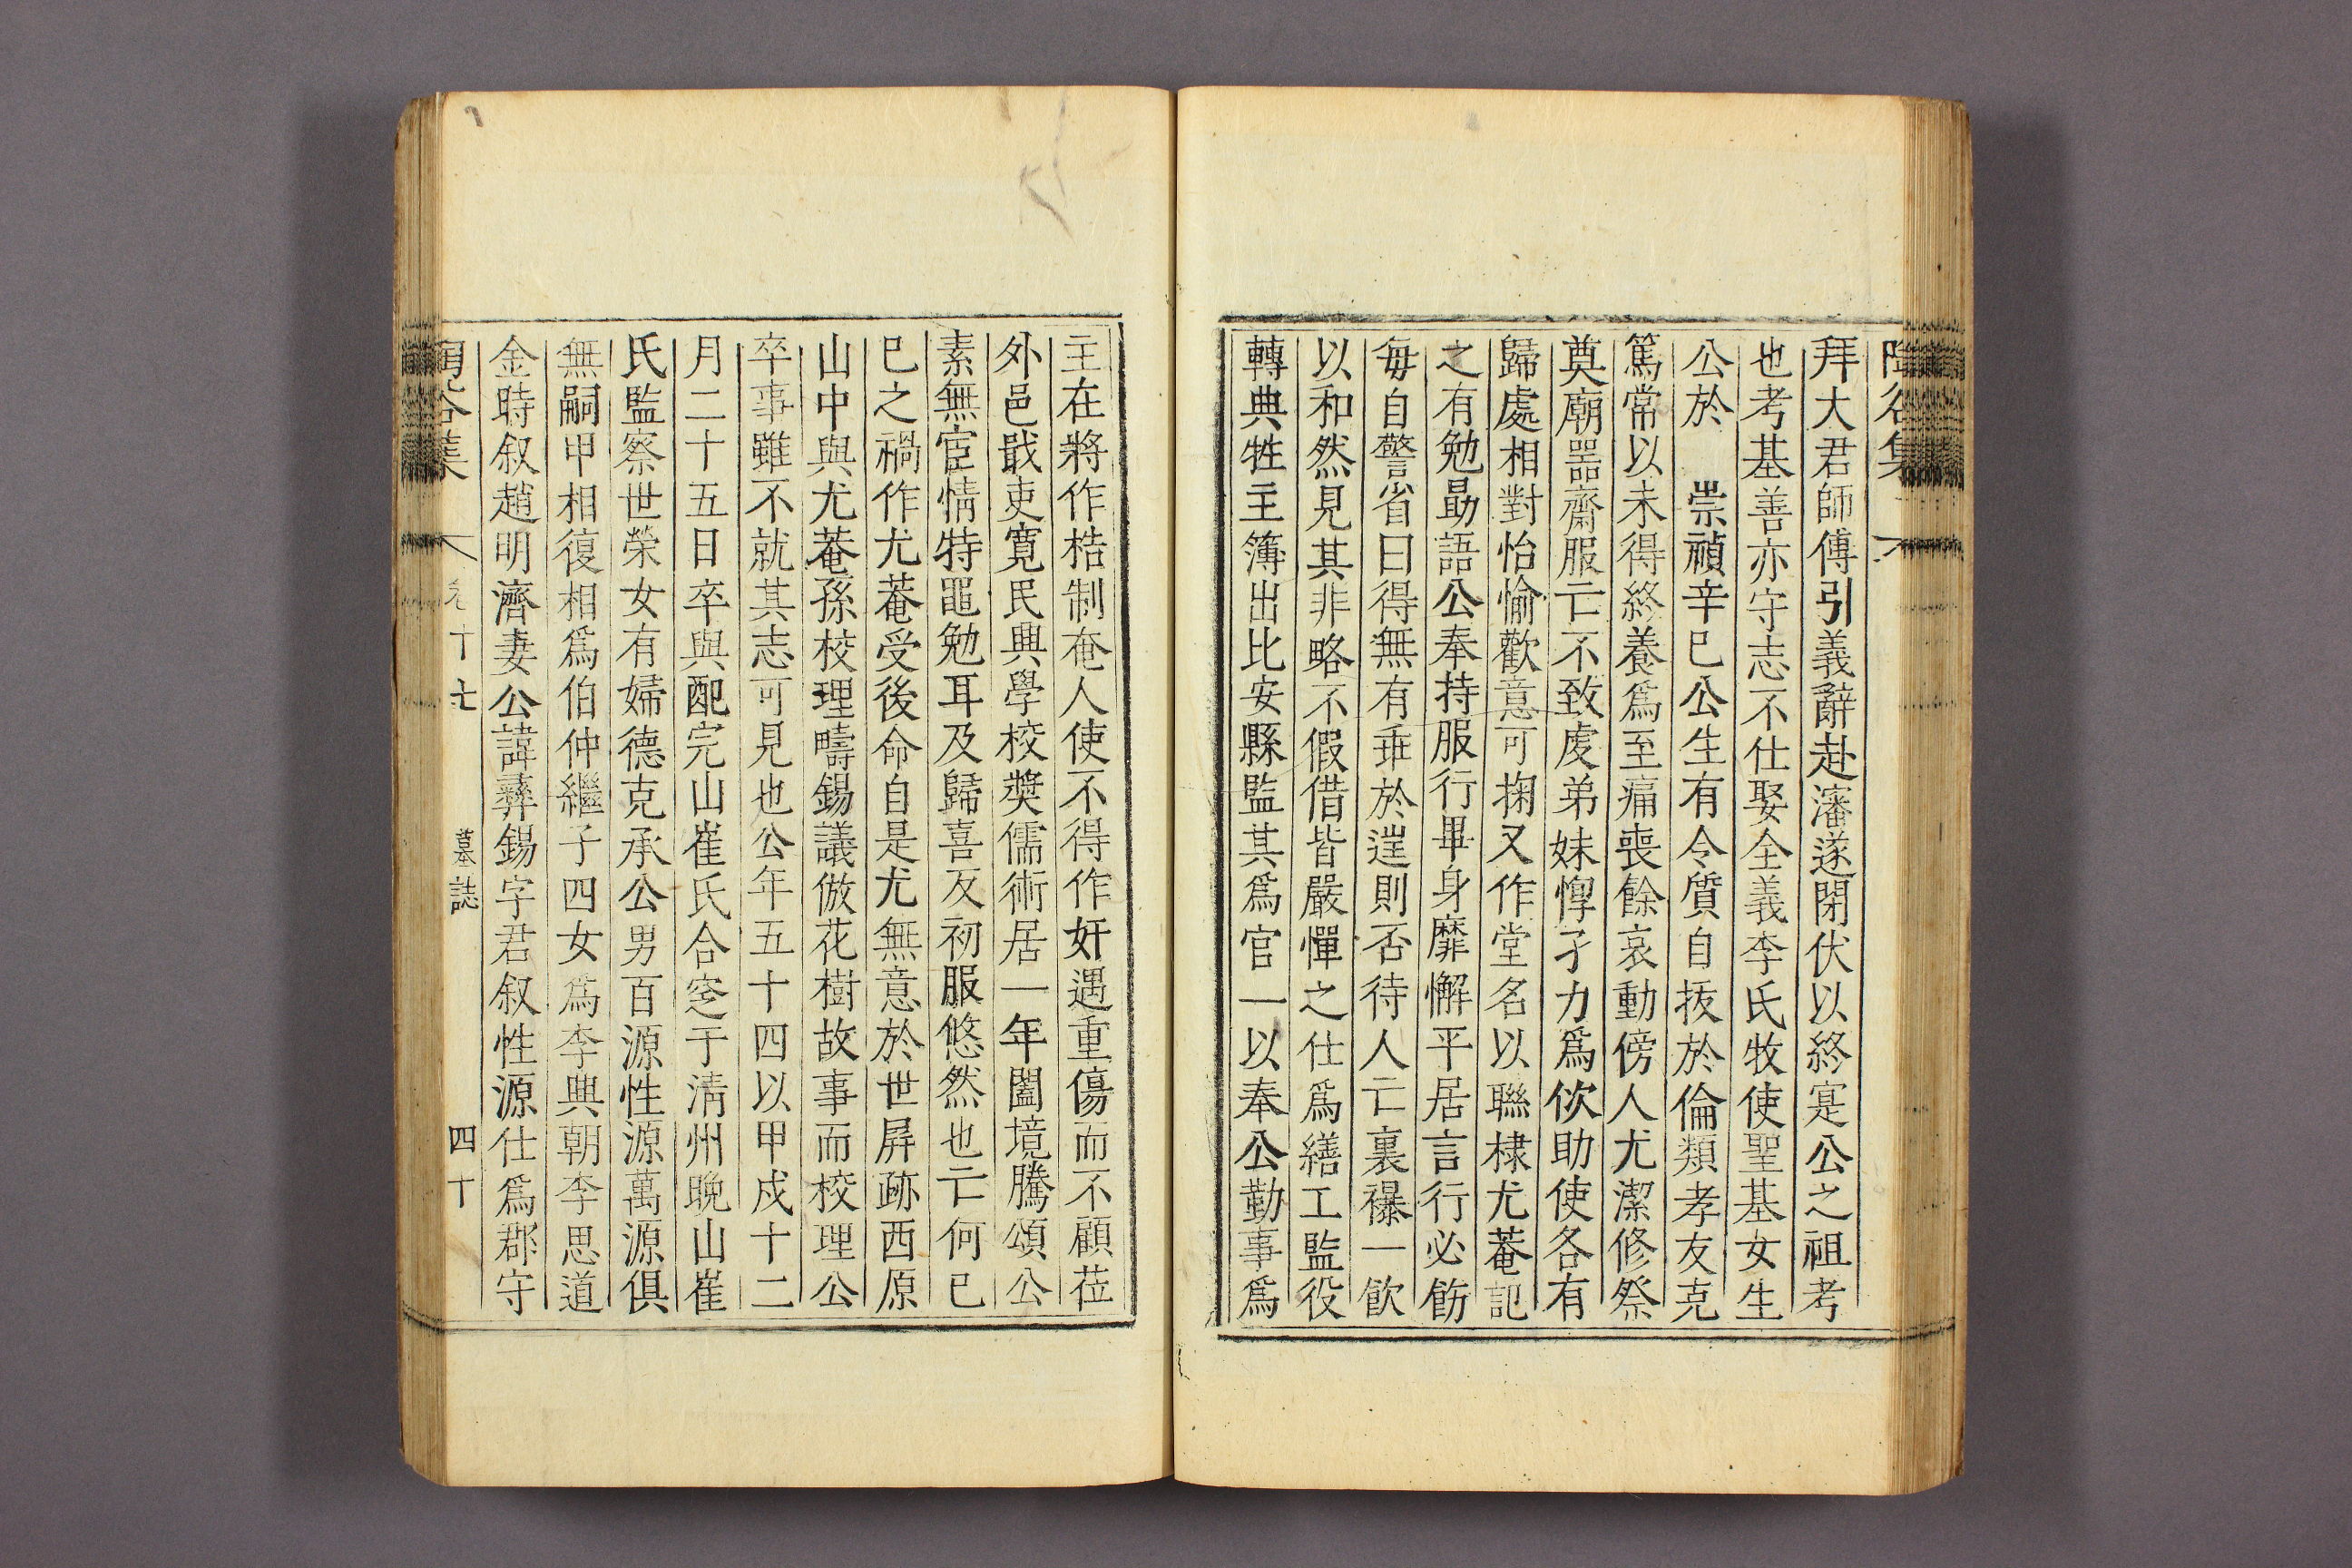 拜大君師傅引義辭赴瀋遂閉伏以終寔公之祖考
也考基善亦守志不仕娶全義李氏牧使聖基女生
公於 崇禎辛巳公生有令質自拔於倫類孝友克
篤常以未得終養爲至痛喪餘哀動傍人尤潔修祭
奠廟噐齋服亡不致虔弟妹惸孑力爲佽助使各有
歸處相對怡愉歡意可掬又作堂名以聯棣尤菴記
之有勉勗語公奉持服行畢身靡懈平居言行必飭
每自警省曰得無有乖於逞則否待人亡裏襮一飮
以和然見其非略不假借皆嚴憚之仕爲繕工監役
轉典牲主簿出比安縣監其爲官一以奉公勤事爲
主在將作梏制奄人使不得作奸遇重傷而不顧莅
外邑戢吏寬民興學校奬儒術居一年闔境騰頌公
素無宦情特黽勉耳及歸喜反初服悠然也亡何己
巳之禍作尤菴受後命自是尤無意於世屛跡西原
山中與尤菴孫校理疇錫議倣花樹故事而校理公
卒事雖不就其志可見也公年五十四以甲戍十二
月二十五日卒與配完山崔氏合窆于淸州晩山崔
氏監察世榮女有婦德克承公男百源性源萬源俱
無嗣甲相復相爲伯仲繼子四女爲李典朝李思道
金時叙趙明濟妻公諱彛錫字君叙性源仕爲郡守
谷集
卷十七
墓誌
四十